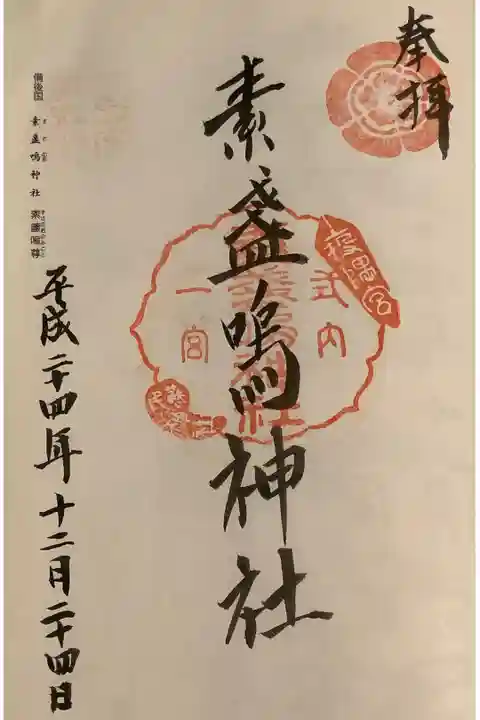 奉拝
素盞嗚神社
式内
一宮
備後国 素盞嗚神社
平成二十四年十二月二十四日